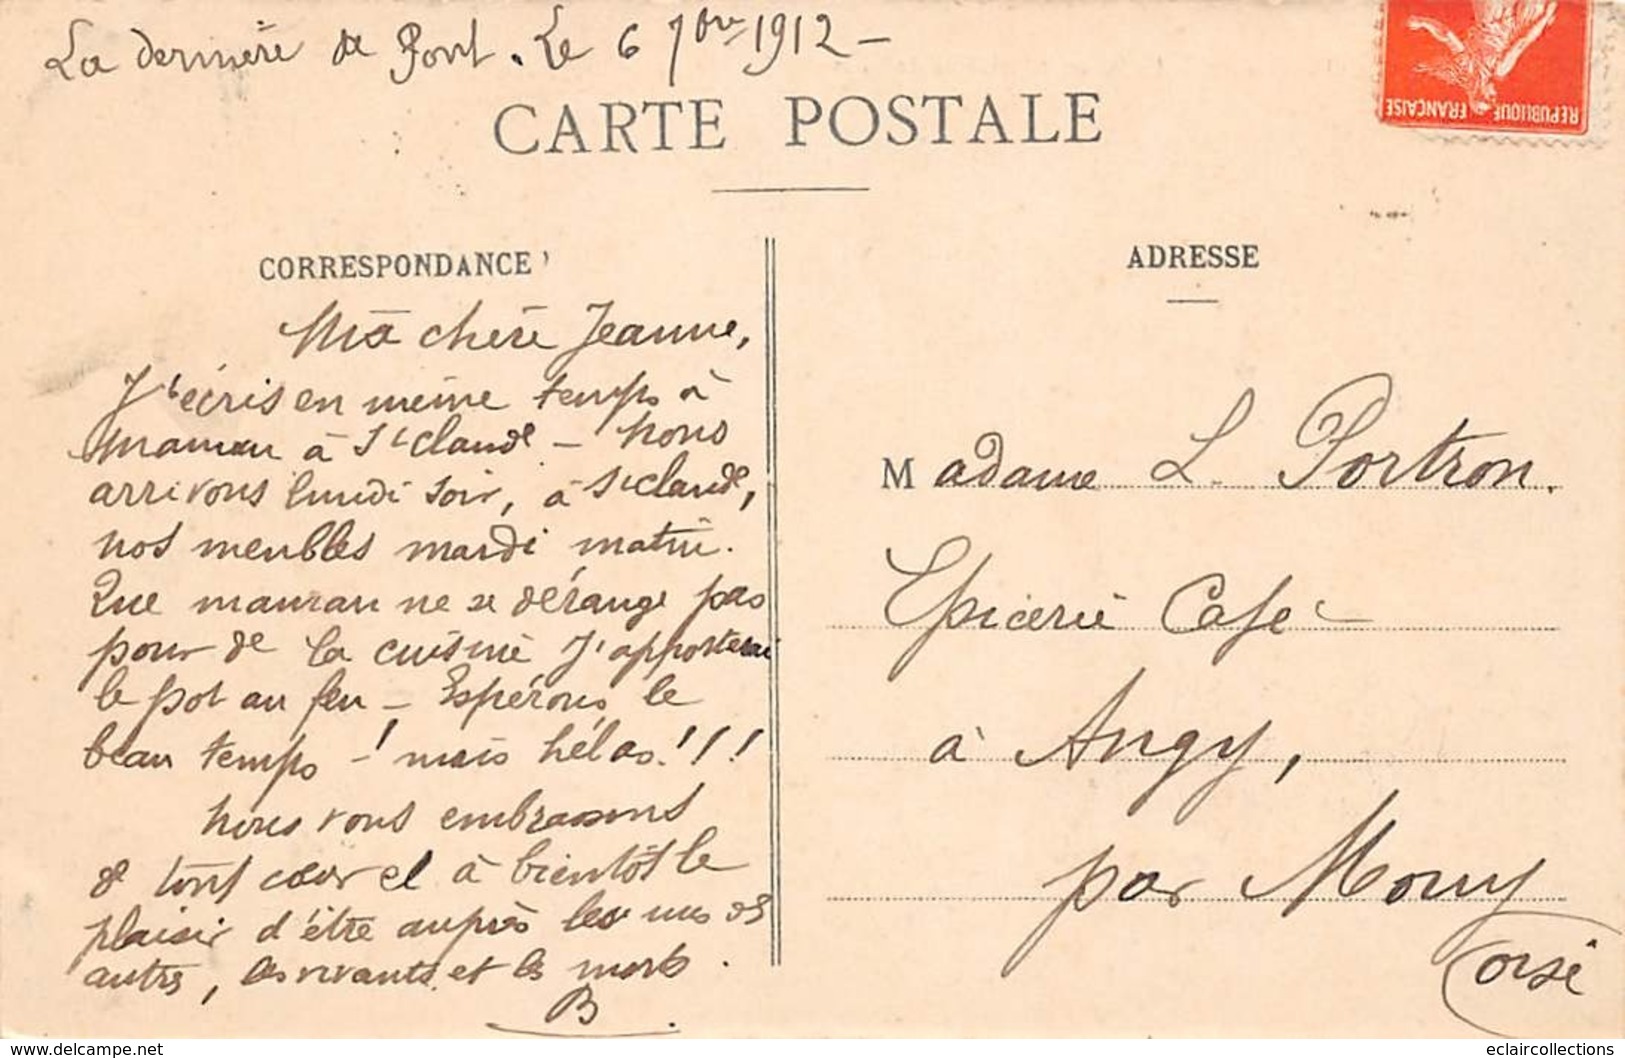 La dernière de Pont. Le 6 7bre 1912 –
REPUBLIQUE FRANCAISE
CARTE POSTALE
CORRESPONDANCE
ADRESSE
Ma chère Jeanne,
J'écris en même temps à
maman à St Claude – Nous
arrivons lundi soir, à St Claude,
nos meubles mardi matin.
Que maman ne se dérange pas
pour de la cuisine J'apporterai
le pot au feu – Espérons le
beau temps –! mais hélas!!!
Nous vous embrassons
de tout cœur et à bientôt le
plaisir d'être auprès les uns des
autres, les vivants et les morts.
B.
Madame L. Portron.
Epicerie Café
à Angy,
par Mouy
Oise
www.delcampe.net
eclaircollections